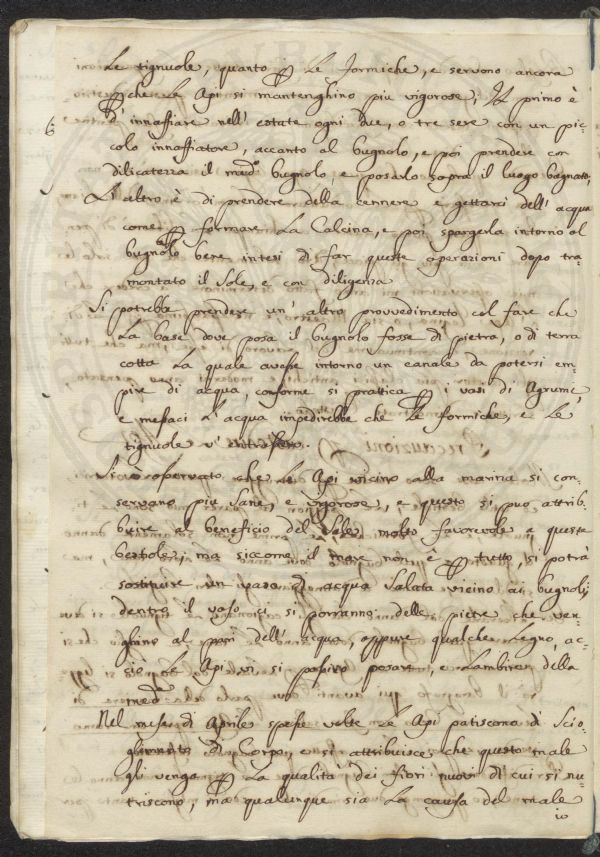 Le tignuole, quanto p Le formiche, e servono ancora
pche Le Api si mantenghino piu vigorose; Il primo è
d'innaffiare nell'estate ogni due, o tre sere con un pic-
colo innaffiatore, accanto al bugnolo, e poi prendere con
dilicatezza il medo bugnolo e posarlo sopra il luogo bagnato,
L'altro è di prendere della Cennere e gettarci dell'acqua
come p formare La Calcina, e poi spargerla intorno al
bugnolo bene intesi di far queste operazioni dopo tra-
montato il Sole, e con diligenza
Si potrebbe prendere un'altro provvedimento col fare che
La base dove posa il bugnolo fosse di pietra, o di terra
cotta La quale avesse intorno un canale da potersi em-
pire di acqua, conforme si prattica p i vasi di Agrumi,
e messaci L'acqua impedirebbe che Le formiche, e Le
tignuole v'entrassero.
Si è osservato che Le Api vicino alla marina si con-
servano piu Sane, e vigorose, e questo si puo attrib-
buire al beneficio del Sale molto favorevole a queste
bestiole; ma siccome il mare non è p tutto, si potrà
sostituire un vaso di acqua Salata vicino ai bugnoli,
dentro il vaso ci si porranno delle pietre che ven-
ghino al pari dell'acqua, oppure qualche Legno, ac-
ciò Le Api vi si possino posare, e Lambire della
meda
Nel mese di Aprile spesse volte Le Api patiscono di Scio-
glimento di Corpo, e si attribuisce che questo male
gli venga p La qualità dei fiori nuovi di cui si nu-
triscono, ma qualunque sia La causa del male
io